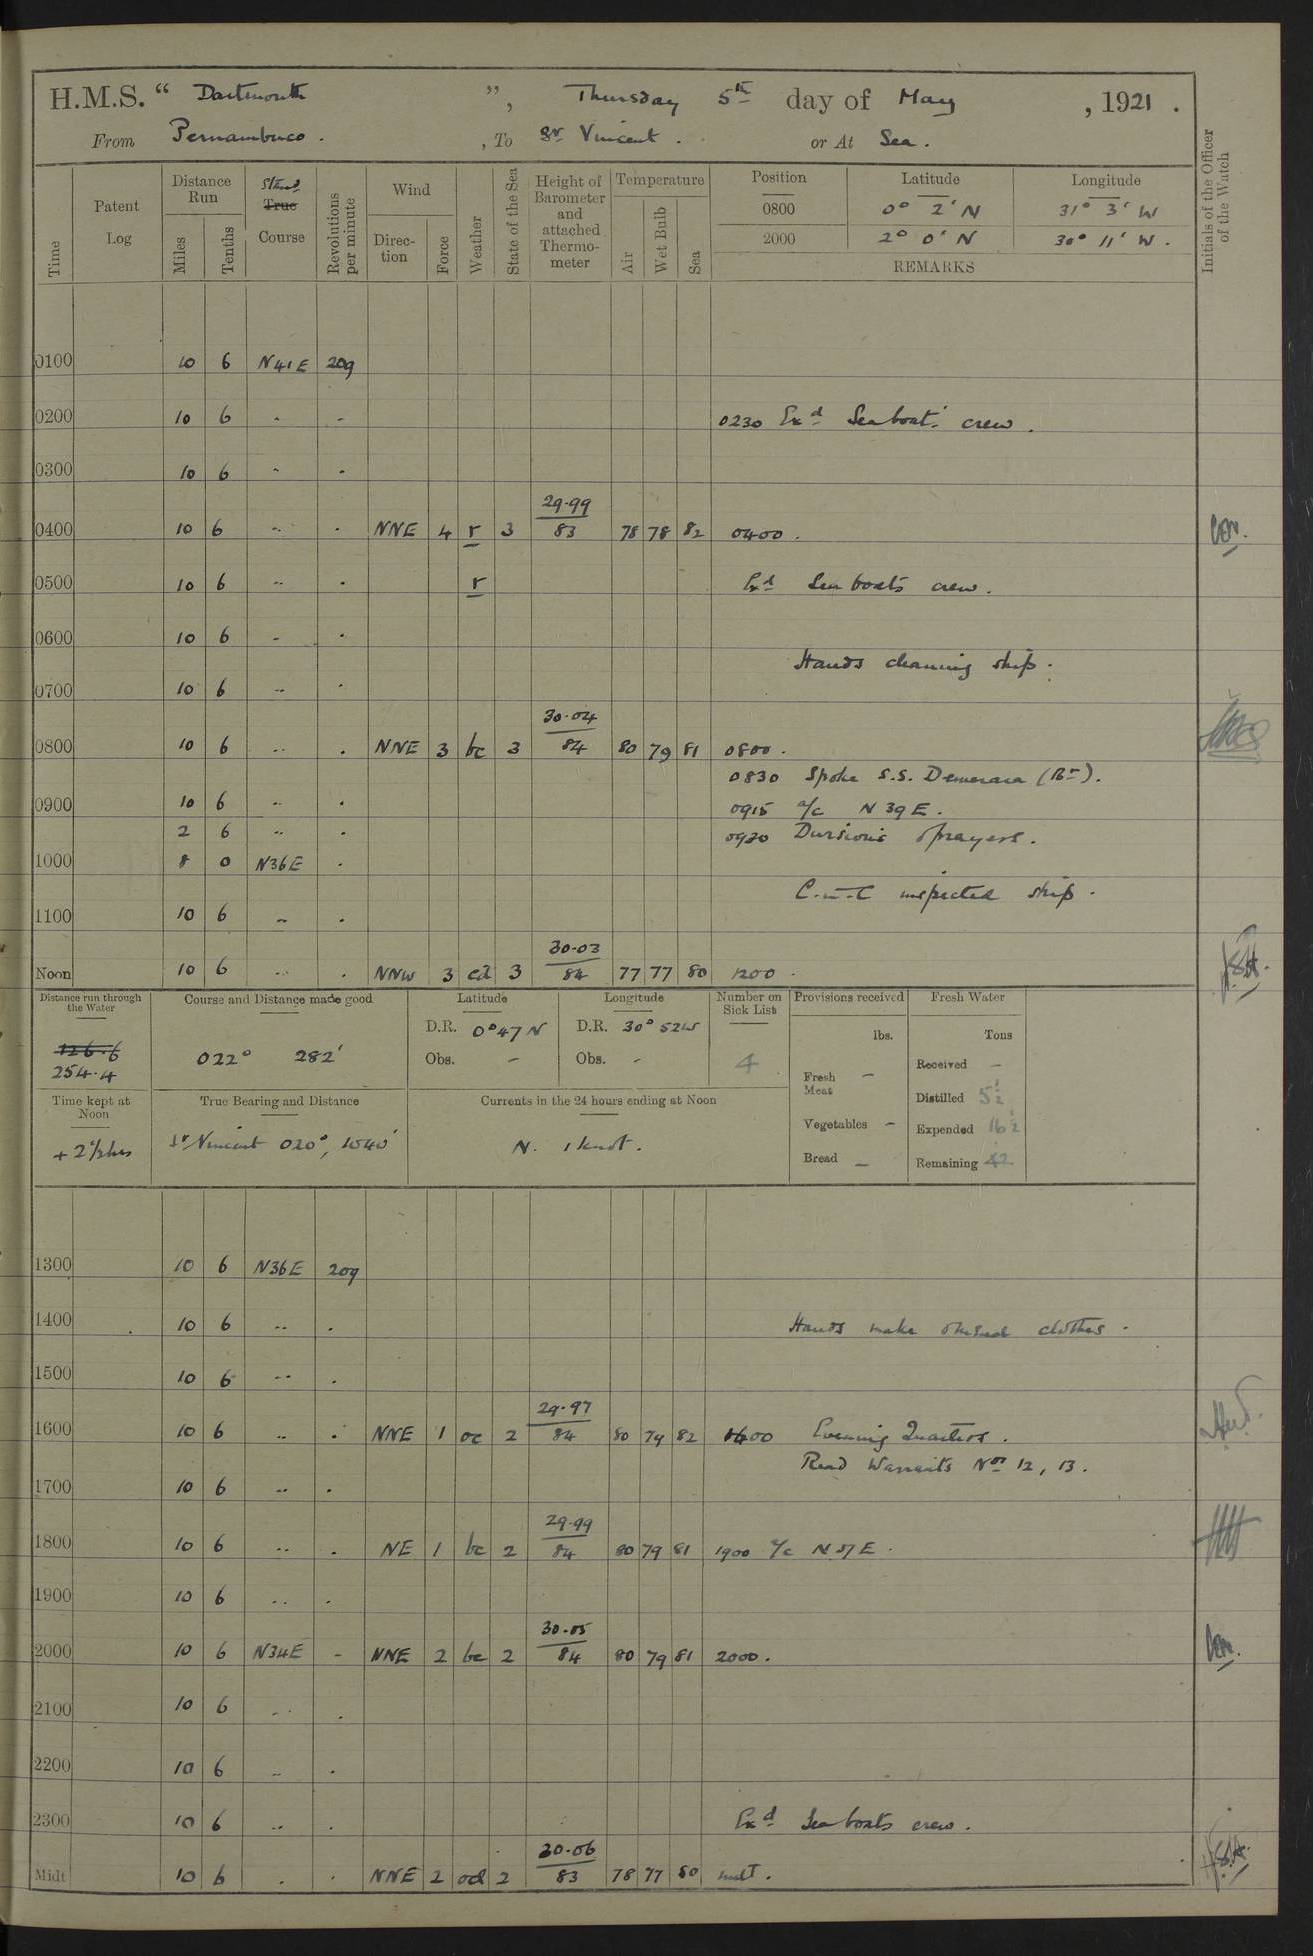 H.M.S. “ Dartmouth ”, Thursday 5th day of May , 1921 .
From Pernambuco . , To St Vincent . or At Sea .
Time
Patent Log
Distance Run
Miles
Tenths
Stand
True
Course
Revolutions per minute
Wind
Direction
Force
Weather
State of the Sea
Height of Barometer and attached Thermometer
Temperature
Air
Wet Bulb
Sea
Position Latitude Longitude
0800 0° 2' N 31° 3' W
2000 2° 0' N 30° 11' W .
REMARKS
Initials of the Officer of the Watch
0100 10 6 N41E 209
0200 10 6 " " 0230 Exd Seaboats crew .
0300 10 6 " "
29.99
0400 10 6 " " NNE 4 r 3 83 78 78 82 0400 .
0500 10 6 " " r Exd Sea boats crew .
0600 10 6 " "
Hands cleaning ship .
0700 10 6 " "
30.04
0800 10 6 " " NNE 3 bc 3 84 80 79 81 0800 .
0830 Spoke S.S. Demerara (Br) .
0900 10 6 " " 0915 a/c N 39 E .
2 6 " " 0930 Divisions & prayers .
1000 8 0 N36E "
C-in-C inspected ship .
1100 10 6 " "
30.03
Noon 10 6 " " NNW 3 cd 3 84 77 77 80 1200 .
Distance run through the Water
126.6
254.4
Course and Distance made good
022° 282'
Latitude
D.R. 0° 47 N
Obs. -
Longitude
D.R. 30° 52 W
Obs. -
Number on Sick List
4
Provisions received
lbs.
Fresh Meat -
Vegetables -
Bread -
Fresh Water
Tons
Received -
Distilled 5½
Expended 16½
Remaining
Time kept at Noon
+ 2½hrs
True Bearing and Distance
St Vincent 020°, 1040'
Currents in the 24 hours ending at Noon
N. 1 knot .
1300 10 6 N36E 209
1400 10 6 " " Hands make & mend clothes .
1500 10 6 " "
29.97
1600 10 6 " " NNE 1 oc 2 84 80 79 82 1600 Evening Quarters .
Read Warrants Nos 12, 13 .
1700 10 6 " "
29.99
1800 10 6 " " NE 1 bc 2 84 80 79 81 1900 a/c N 37 E .
1900 10 6 " "
30.05
2000 10 6 N34E " NNE 2 bc 2 84 80 79 81 2000 .
2100 10 6 " "
2200 10 6 " "
2300 10 6 " " Exd Sea boats crew .
30.06
Midt 10 6 " " NNE 2 od 2 83 78 77 80 midt .